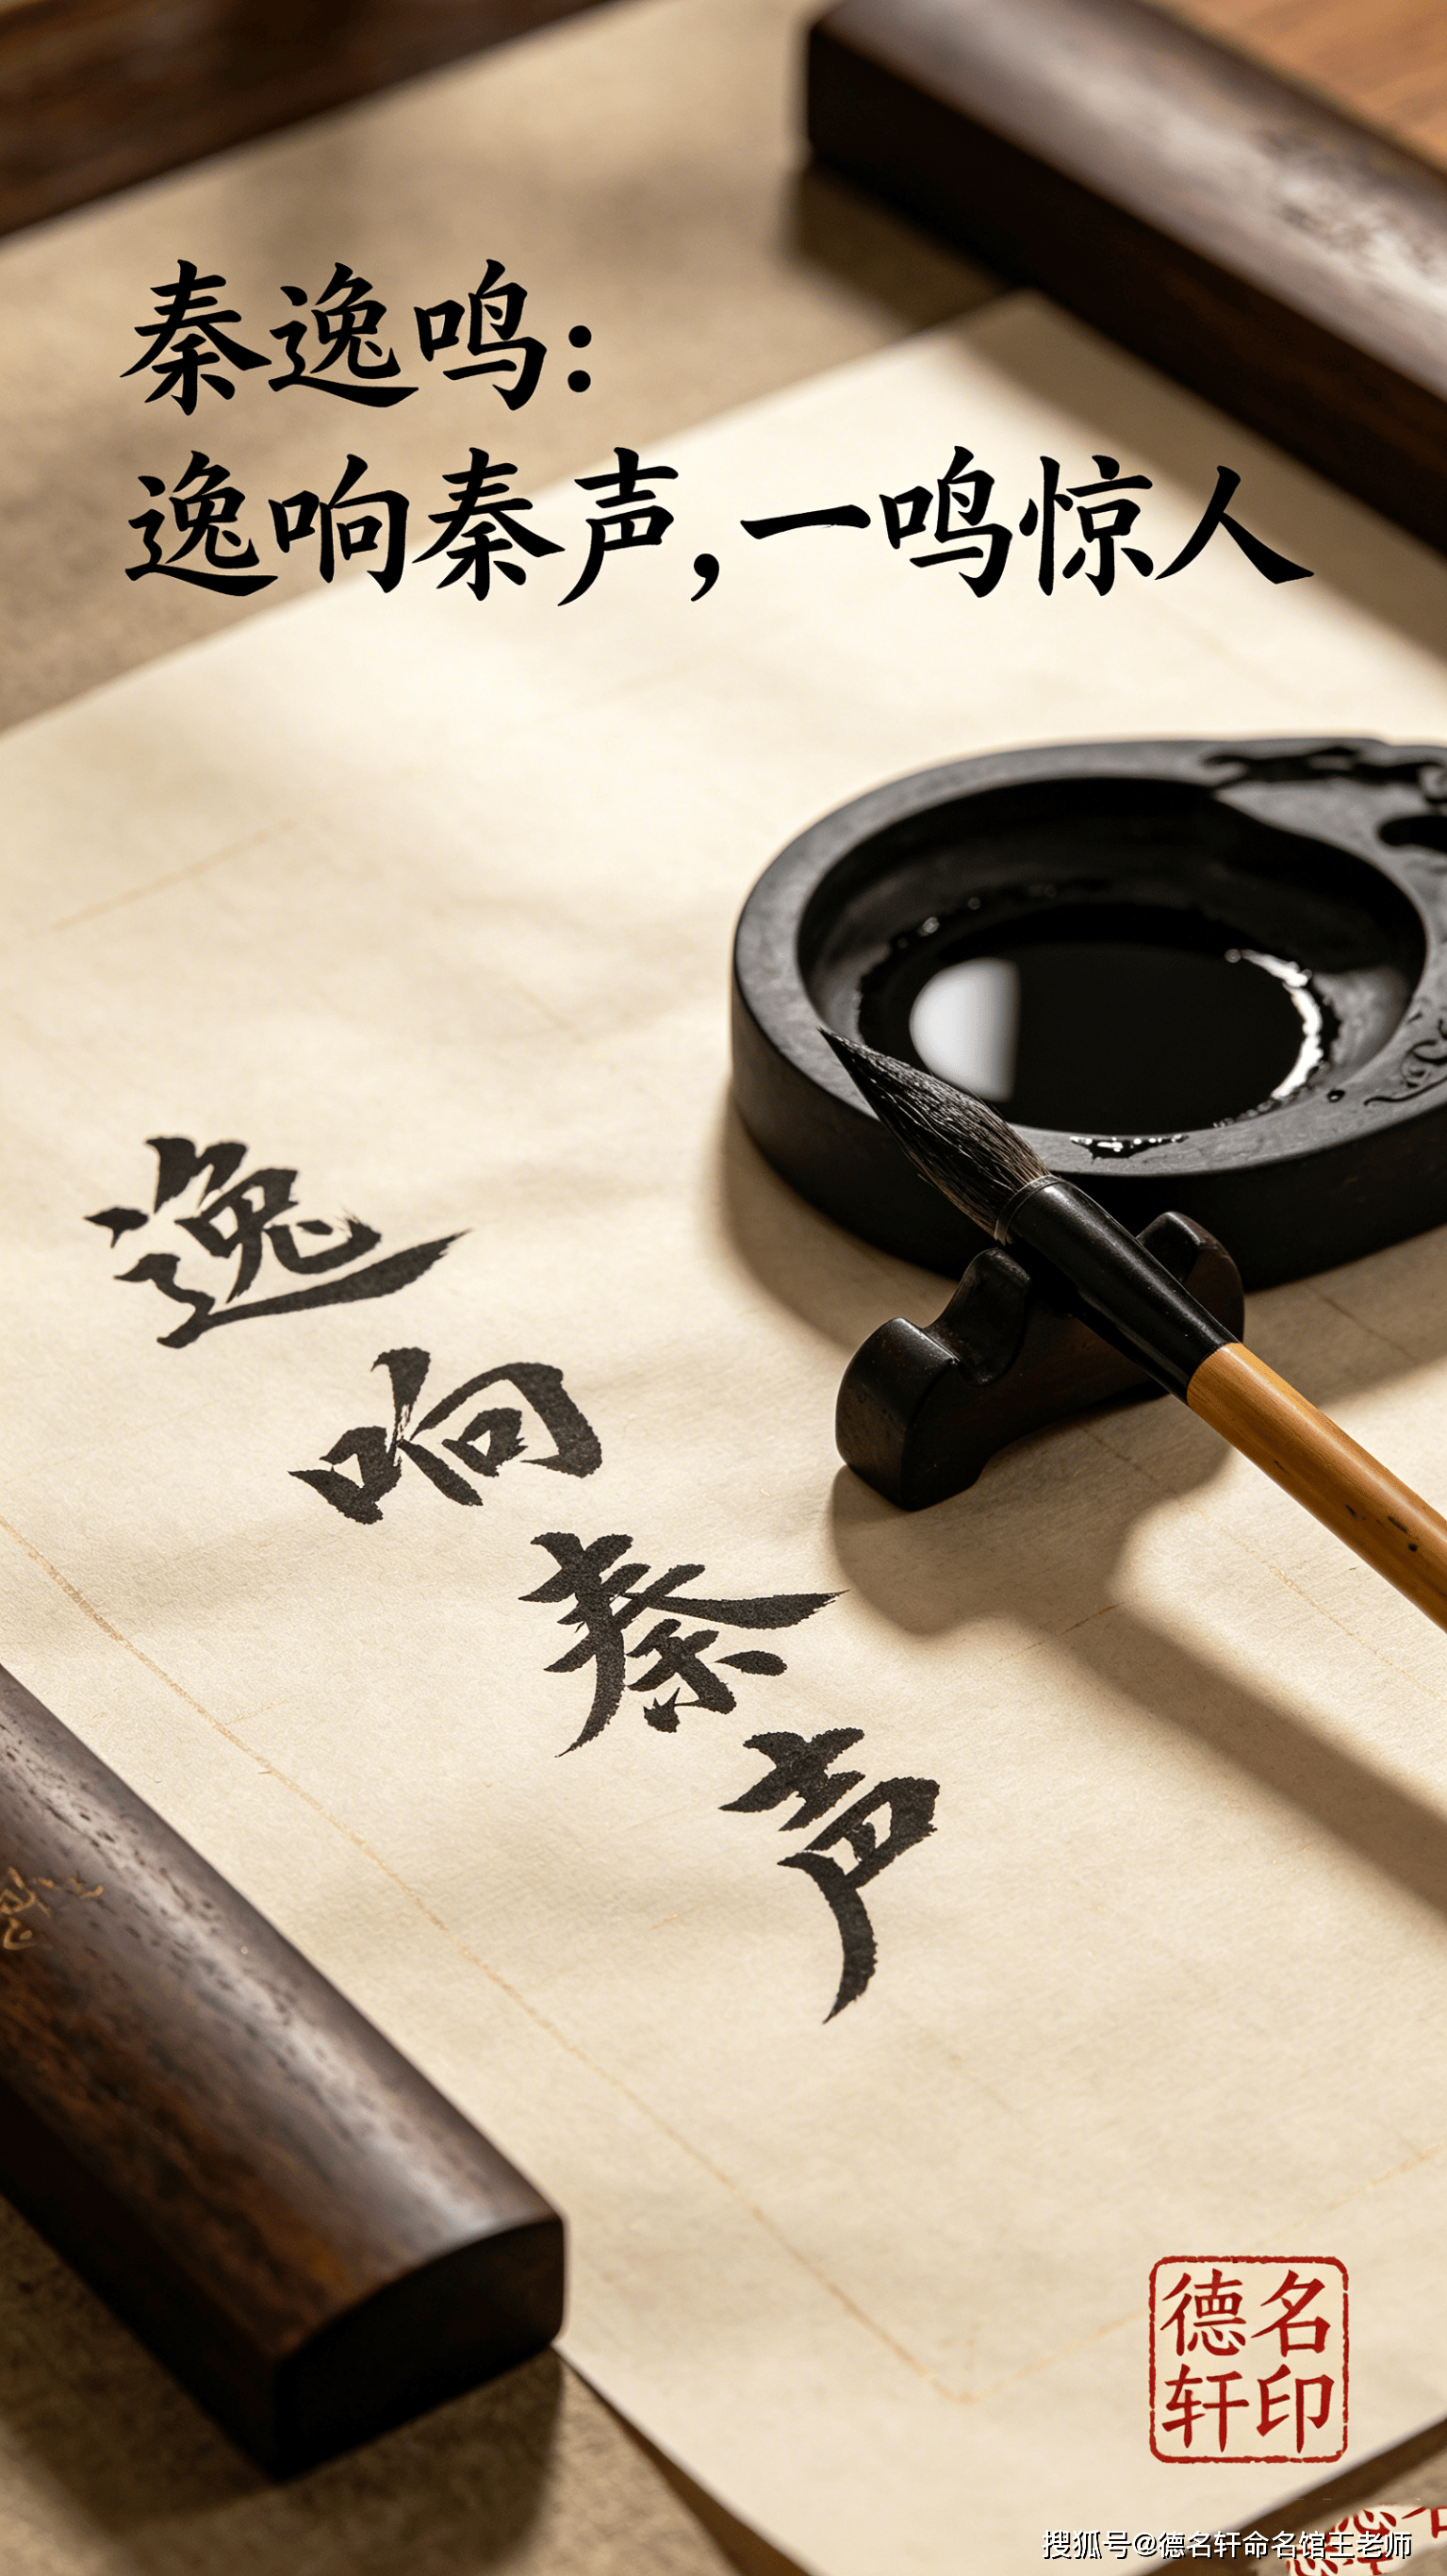 秦逸鸣：
逸响秦声，一鸣惊人
逸响秦声
德名
轩印
搜狐号@德名轩命名馆王老师